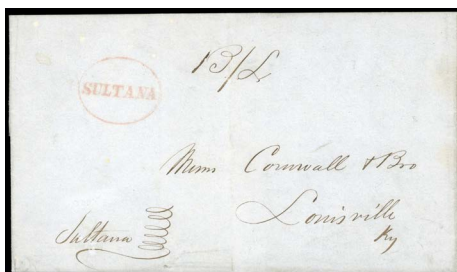 B/L
SULTANA
Messrs Cornwall & Bro
Louisville
Sultana
Ky